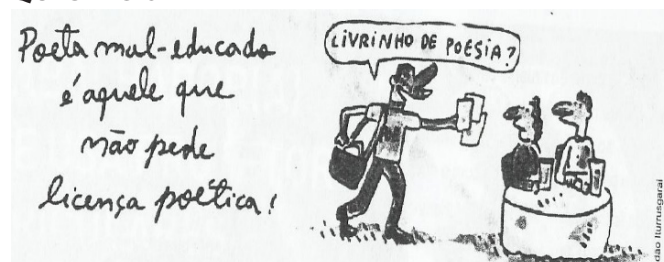 Poeta mal-educado
é aquele que
não pede
licença poética!
LIVRINHO DE POESIA?